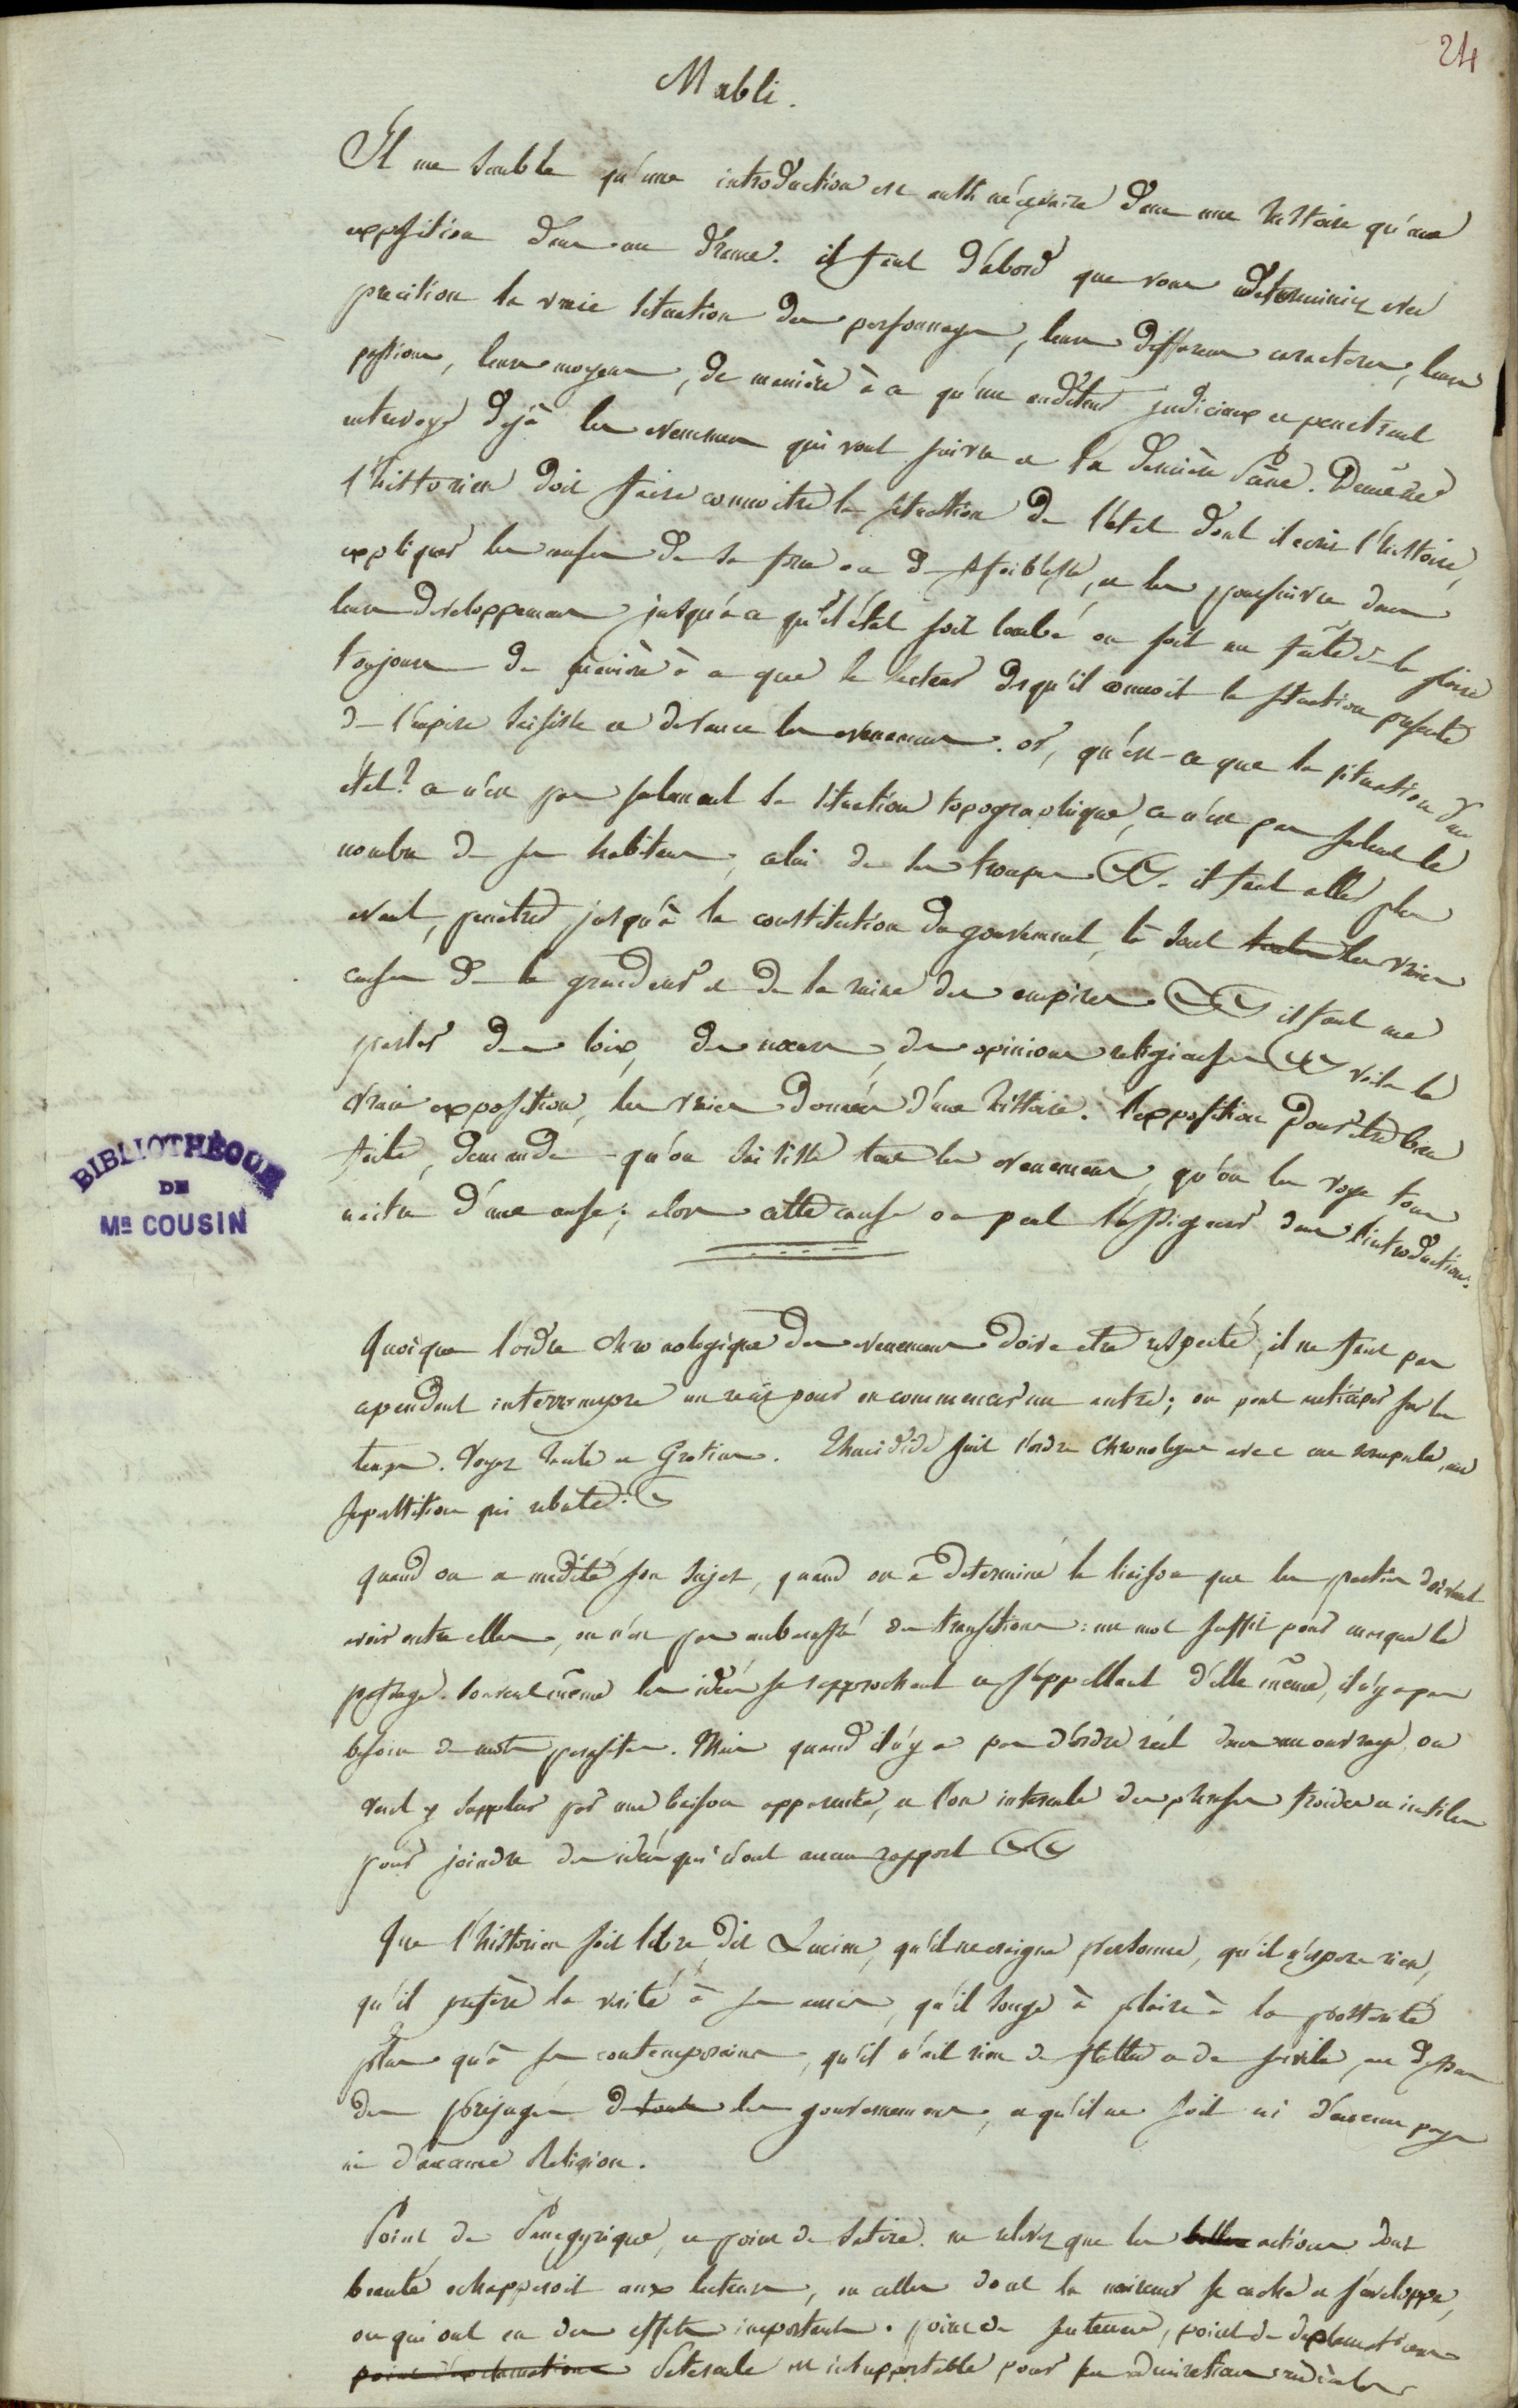 24
Mabli.
Il me semble qu'une introduction est aussi nécessaire dans une histoire qu'une
exposition dans un drame. il faut d'abord que vous determiniez avec
precision la vraie situation des personnages, leurs differens caracteres, leurs
passions, leurs moyens, de manière à ce qu'un auditeur judicieux et penetrant
entrevoye dejà les evenemens qui vont suivre et la dernière scène. De même
l'historien doit faire connoitre la situation de l'état dont il ecrit l'histoire,
expliquer les causes de sa force ou de sa foiblesse, et les poursuivre dans
leurs developpemens jusqu'à ce qu'l'état soit tombé ou soit au faîte de la gloire
toujours de manière à ce que le lecteur dsqu'il connoit la situation presente
de l'empire saisisse et devance les evenemens. or, qu'est-ce que la situation d'un
état? ce n'est pas seulement la situation topographique, ce n'est pas seulement le
nombre de ses habitans, celui de ses troupes &&. il faut aller plus
avant, penetrer jusqu'à la constitution du gouvernement, là sont toutes les vraies
causes de la grandeur et de la ruine des empires && il faut me
parler des loix, des moeurs, des opinions religieuses && voila la
vraie exposition, les vraies données d'une histoire. l'exposition pour être bien
faite, demande qu'on saisisse tous les evenemens, qu'on les voye tous
naitre d'une cause; alors cette cause on peut l'assigner dans l'introduction.
BIBLIOTHÈQUE
DE
MR COUSIN
Quoique l'ordre chronologique des evenemens doive etre respecté, il ne faut pas
cependant interrompre un recit pour en commencer un autre; on peut anticiper sur les
tems. Voyez Tacite et Grotius. Thucidide suit l'ordre chronologique avec un scrupule, une
superstition qui rebute.
quand on a médité son sujet, quand on a determiné la liaison que les parties doivent
avoir entre elles, on n'est pas embarassé des transitions: un mot suffit pour marquer le
passage. souvent même les idées se rapprochent et s'appellent d'elle même, il n'y a pas
besoin de mots parasites. Mais quand il n'y a pas d'ordre réel dans un ouvrage, on
veut y suppleer par une liaison apparente, et l'on intercale des phrases froides et inutiles
pour joindre des idées qui n'ont aucun rapport &&
Que l'historien soit libre, dit Lucien, qu'il ne craigne personne, qu'il n'espere rien,
qu'il prefère la verité à ses amis, qu'il songe à plaire à la posterité
plus qu'à ses contemporains, qu'il n'ait rien de flatteur et de servile, au dessus
des préjugés de toute les gouvernemens, et qu'il ne soit ni d'aucun pays
ni d'aucune Religion.
Point de Panegyrique, et point de satire. ne relevez que les belles actions dont
beauté echapperoit aux lecteurs, ou celles dont la noirceur se cache et s'enveloppe,
ou qui ont eu des effets importants. point de sentences, point de declamations
point d'exclamations Paterculus est insupportable pour ses admirations ridicules